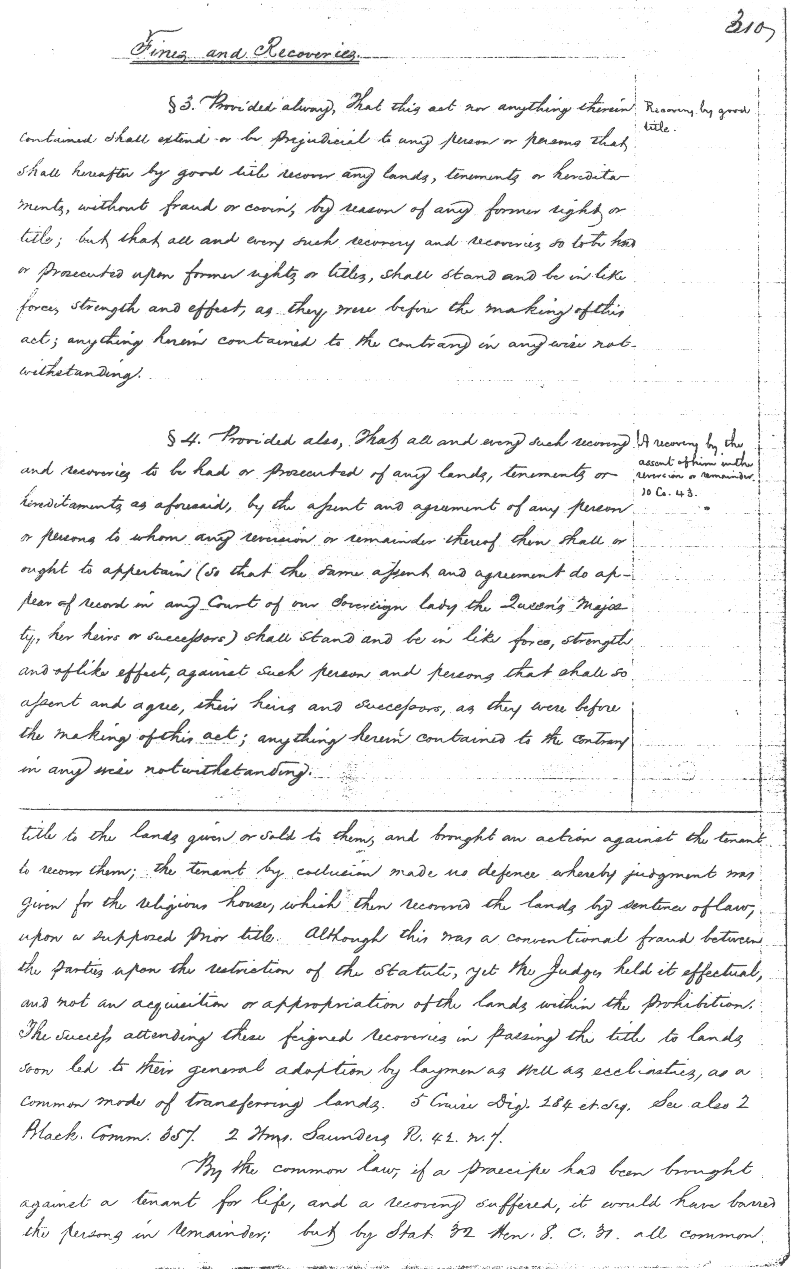 310
Fines and Recoveries.
§ 3. Provided always, That this act nor anything therein
contained shall extend or be prejudicial to any person or persons that
shall hereafter by good title recover any lands, tenements or heredita-
ments, without fraud or covin, by reason of any former right or
title; but that all and every such recovery and recoveries so to be had
or prosecuted upon former rights or titles, shall stand and be in like
force, strength and effect, as they were before the making of this
act; anything herein contained to the contrary in any wise not-
withstanding.
Recovery by good
title.
§ 4. Provided also, That all and every such recovery
and recoveries to be had or prosecuted of any lands, tenements or
hereditaments as aforesaid, by the assent and agreement of any person
or persons to whom any reversion or remainder thereof then shall or
ought to appertain (so that the same assent and agreement do ap-
pear of record in any Court of our Sovereign lady the Queen's Majes
ty, her heirs or successors) shall stand and be in like force, strength
and of like effect, against such person and persons that shall so
assent and agree, their heirs and successors, as they were before
the making of this act; anything herein contained to the contrary
in any wise notwithstanding.
A recovery by the
assent of him in the
reversion or remainder.
10 Co. 43.
title to the lands given or sold to them, and brought an action against the tenant
to recover them; the tenant by collusion made no defence whereby judgment was
given for the religious house, which then recovered the lands by sentence of law,
upon a supposed prior title. Although this was a conventional fraud between
the parties upon the restriction of the Statute, yet the Judges held it effectual,
and not an acquisition or appropriation of the lands within the prohibition.
The success attending these feigned recoveries in passing the title to lands
soon led to their general adoption by laymen as well as eccliastics, as a
common mode of transferring lands. 5 Cruise Dig. 284 et seq. See also 2
Black. Comm. 357. 2 Wms. Saunders R. 42. n. 7.
By the common law, if a praecipe had been brought
against a tenant for life, and a recovery suffered, it would have barred
the persons in remainder; but by Stat. 32 Hen. 8. C. 31. all common